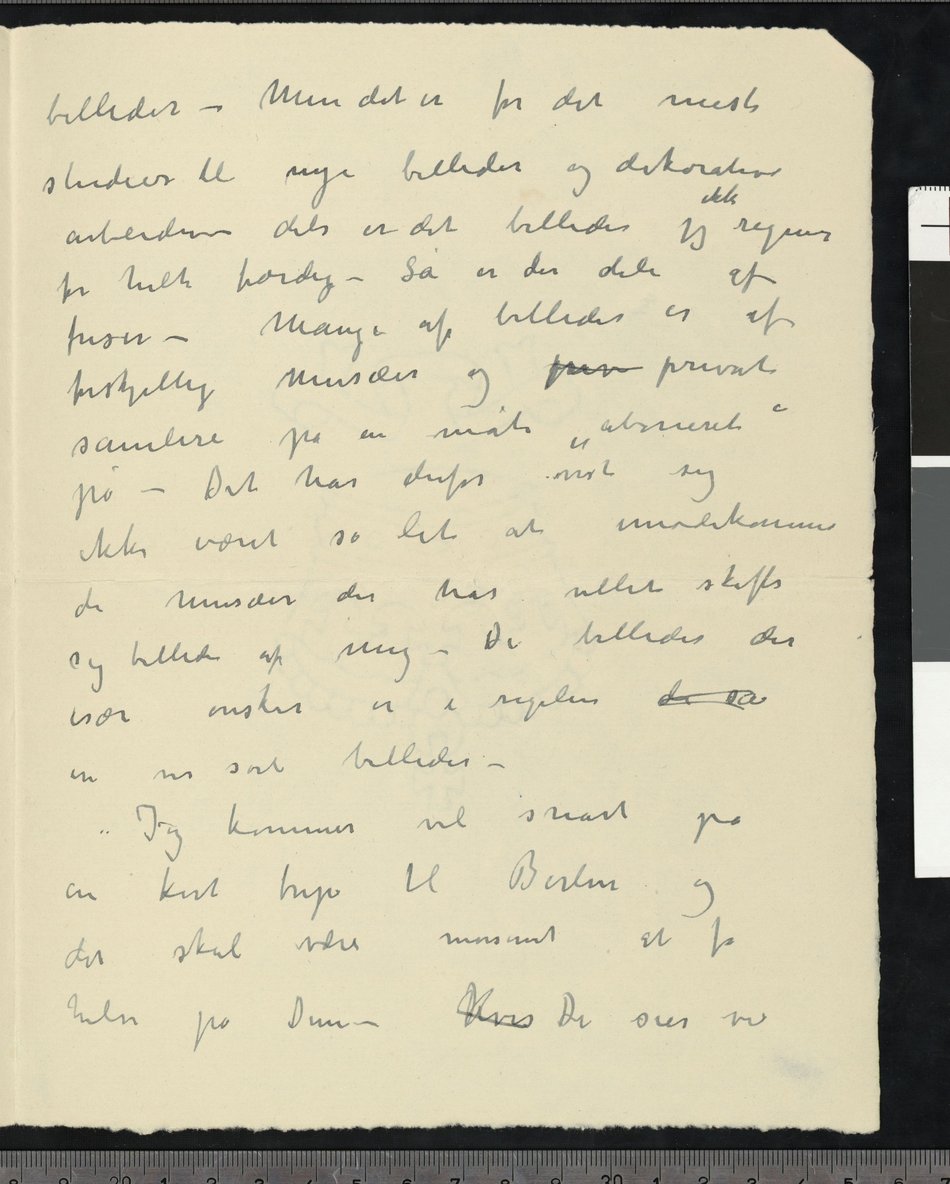 billeder – Men det er for det meste
studier til nye billeder og dekorative
arbeider – dels er det billeder jeg ikke regner
for helt færdig – Så er der dele af
friser – Mange af billeder er af
forskjellig Musæer og priv private
samlere på en måte „aboneret“
på – Det har derfor vist sig
ikke været så let at imødekomme
de musæer der har villet skaffe
sig billeder af mig – De billeder der
især ønskes er i regelen de sa
en vis sort billeder –
Jeg kommer vel snart på
en kort trip til Berlin og
det skal være morsomt at få
hilse på Dem – Hvis De sier vi